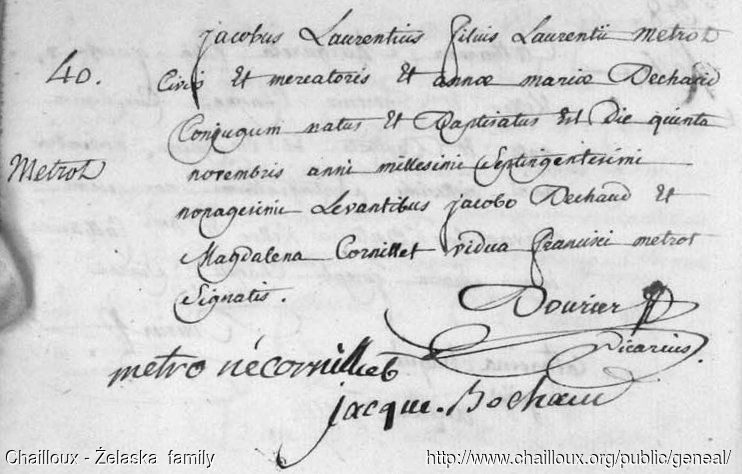 40.
Metrot
Jacobus Laurentius filius Laurentii metrot
Civis Et mercatoris Et annæ mariæ Dechaud
Conjugum natus Et Baptisatus Est Die quinta
novembris anni millesimi Septingentesimi
nonagesimi Levantibus jacobo Dechaud Et
Magdalena Cornillet vidua francisci metrot
Signatis.
Dourier
vicarius.
metro né cornillet
jacque
Chailloux - Żelaska family
http://www.chailloux.org/public/geneal/